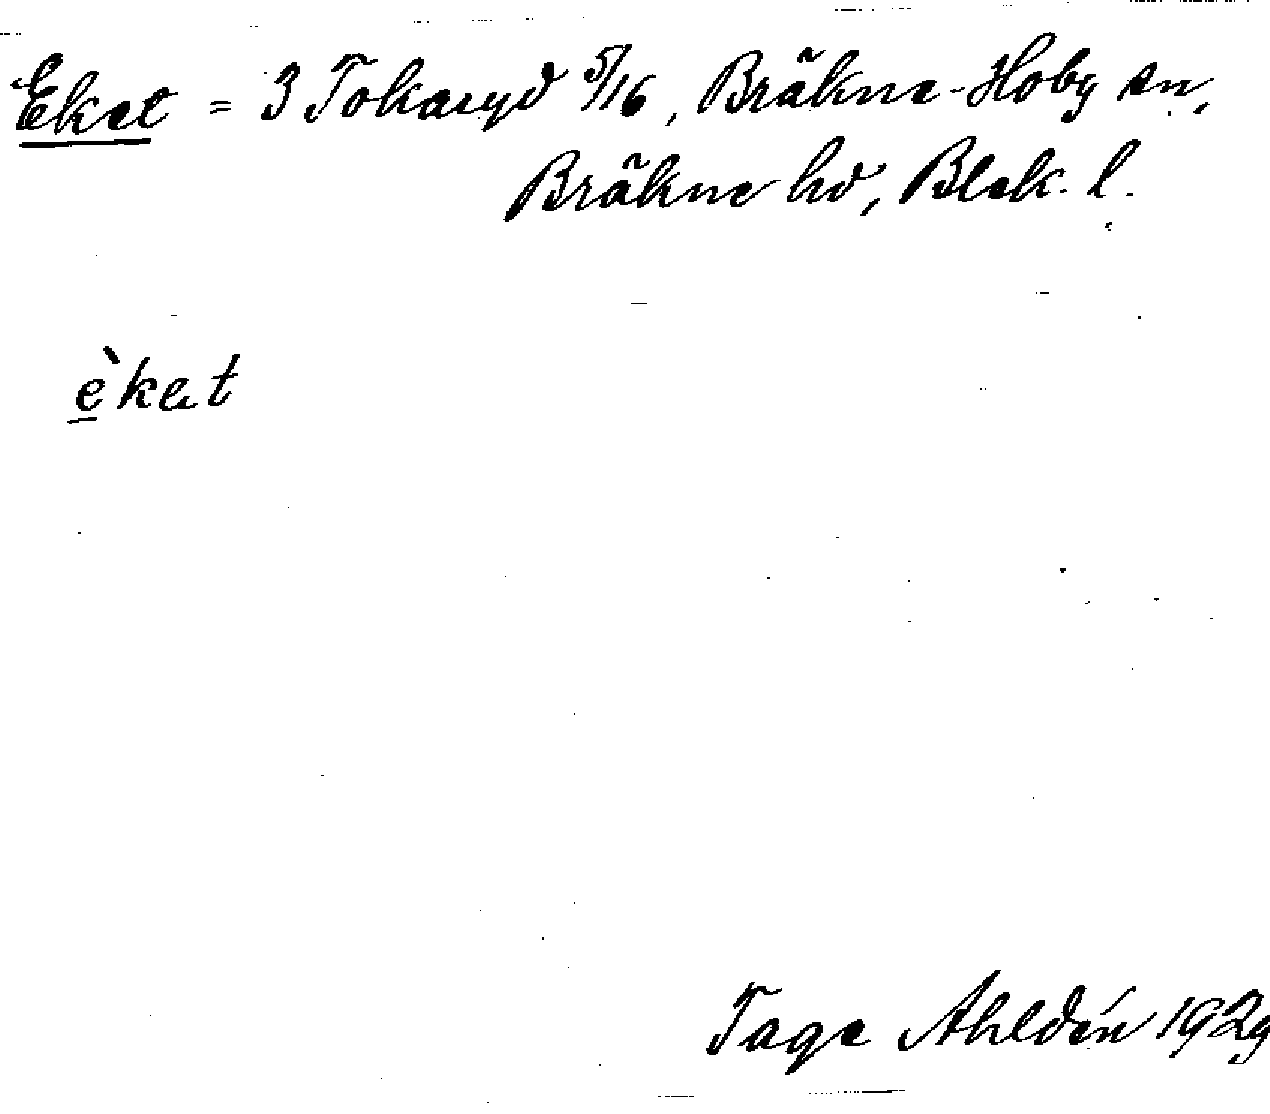 Eket = 3 Tokaryd 5/16, Bräkne-Hoby sn,
Bräkne hd, Blek. l.
èkat
Tage Ahldén 1929